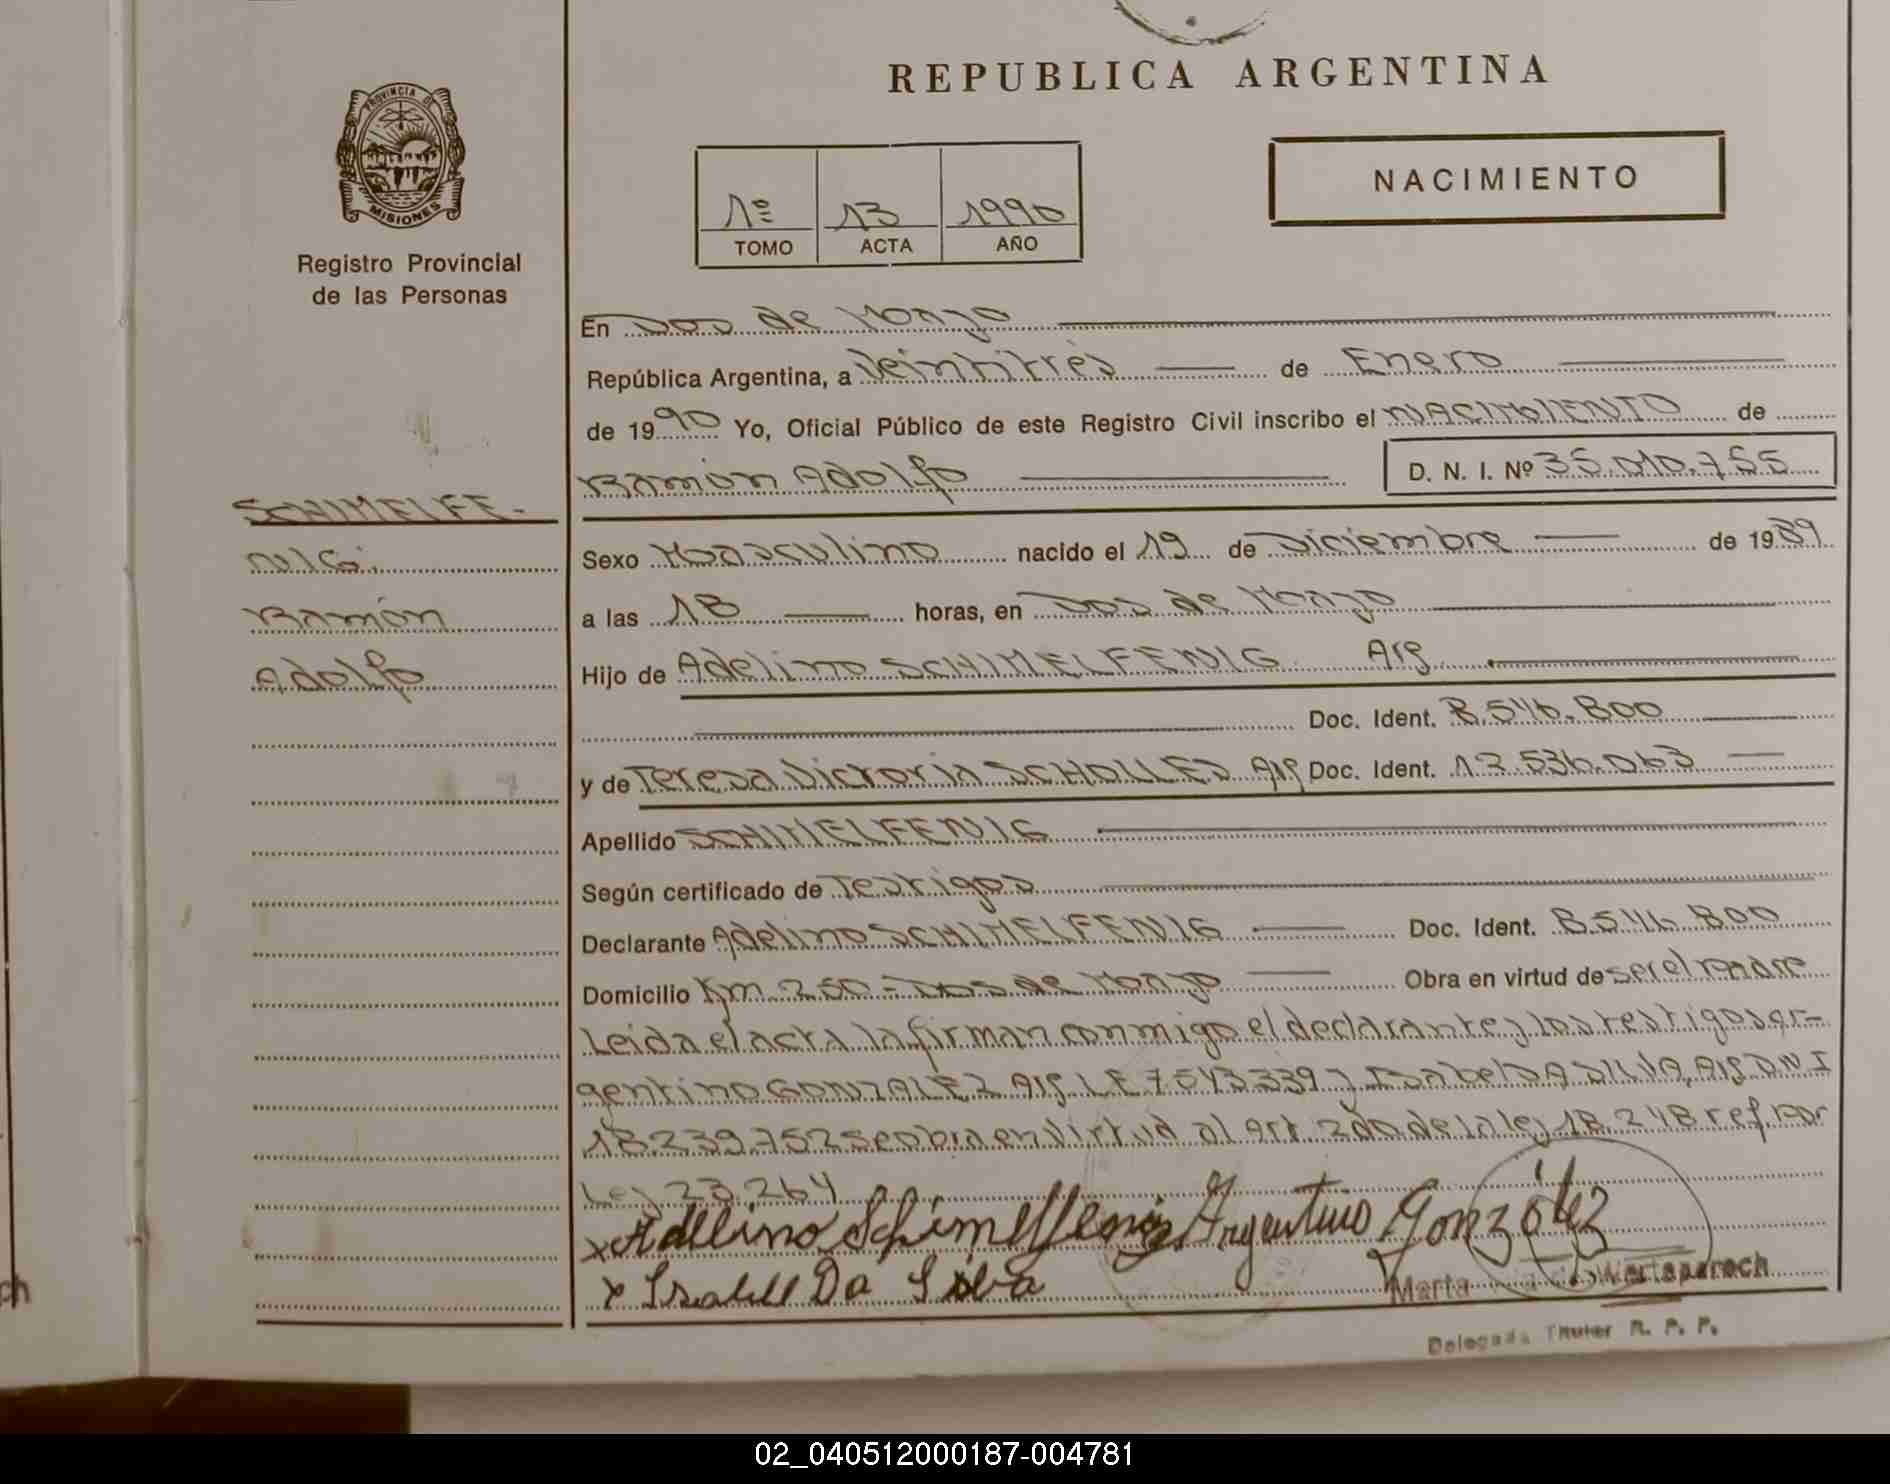 REPUBLICA ARGENTINA
PROVINCIA DE
MISIONES
Registro Provincial
de las Personas
1º 13 1990
TOMO ACTA AÑO
NACIMIENTO
En Dos de Mayo
República Argentina, a Veintitrés de Enero
de 1990 Yo, Oficial Público de este Registro Civil inscribo el NACIMIENTO de
Ramón Adolfo D. N. I. Nº 35.010.755
SCHIMELFE-
NIG:
Ramón
Adolfo
Sexo Masculino nacido el 19 de Diciembre de 1989
a las 18 horas, en Dos de Mayo
Hijo de Adelino SCHIMELFENIG Arg
Doc. Ident. 8.546.800
y de Teresa Victoria SCHOLLES Arg Doc. Ident. 17.536.063
Apellido SCHIMELFENIG
Según certificado de Testigos
Declarante Adelino SCHIMELFENIG Doc. Ident. 8.546.800
Domicilio Km 250 - Dos de Mayo Obra en virtud de ser el Padre
Leida el acta la firman conmigo el declarante y los testigos Ar-
gentino GONZALEZ Arg LE 7543339 y Isabel DA SILVA, Arg DNI
18.239.752 se obra en virtud al Art. 2do de la ley 18.248 ref. por
Ley 23.264
x Adelino Schimelfenig Argentino Gonzalez
x Isabel Da Silva
Marta Wertsperech
Delegada Titular R. P. P.
ch
02_040512000187-004781